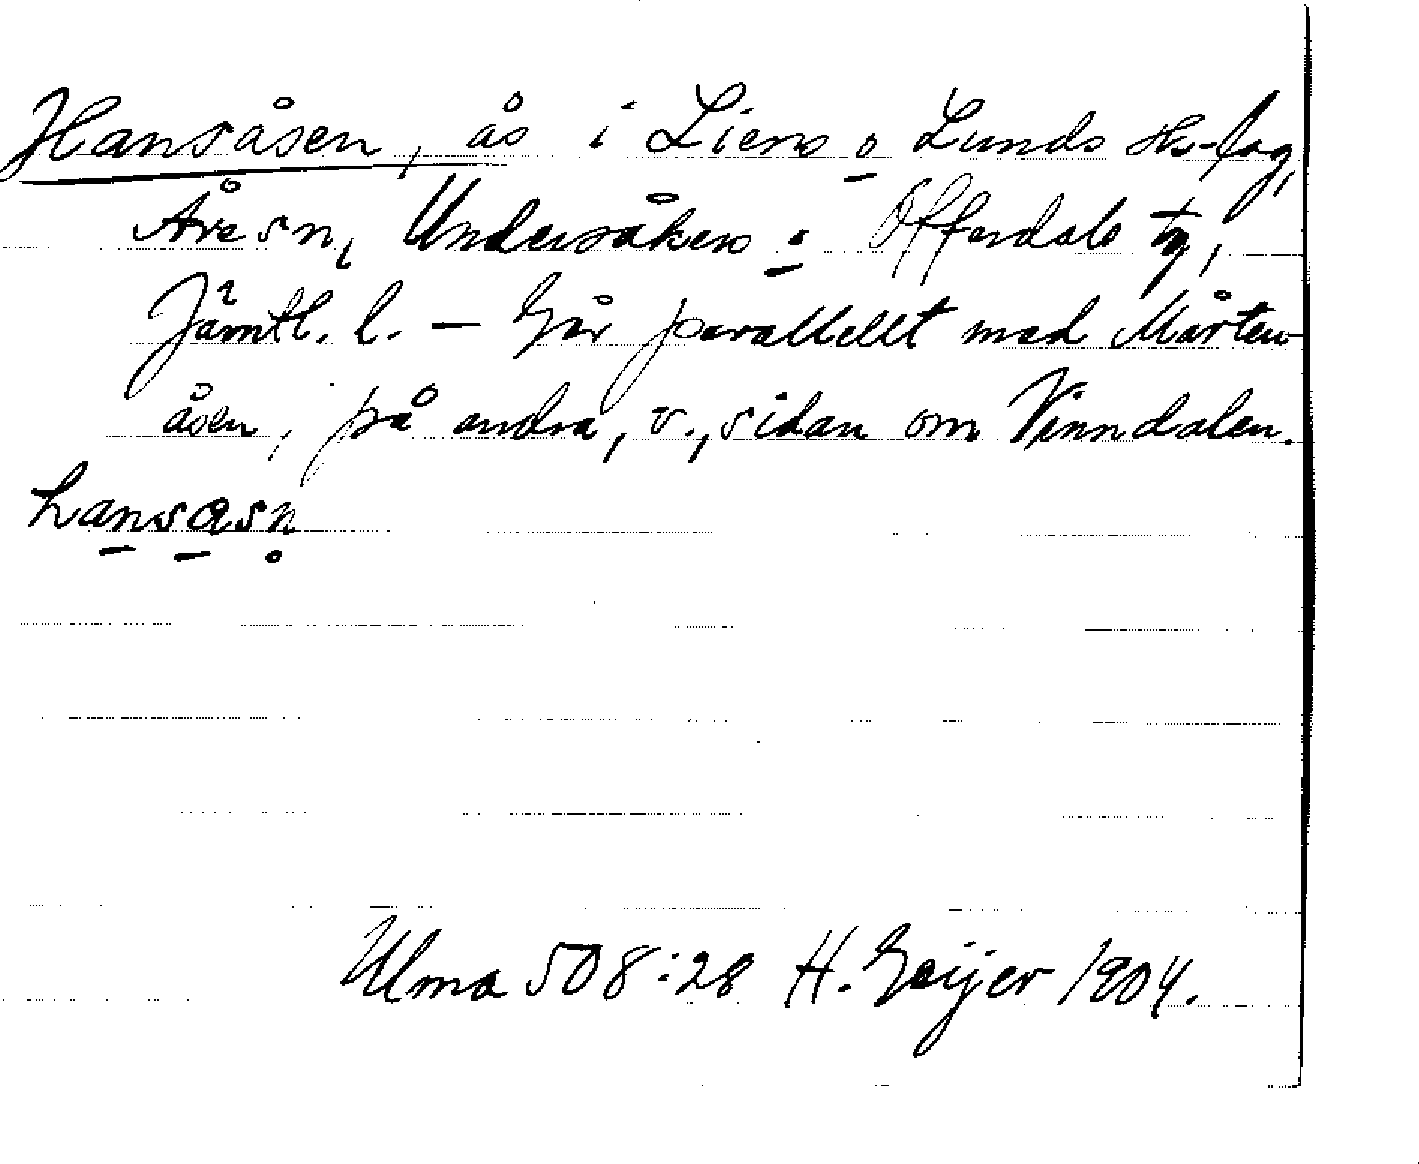 Hansåsen, ås i Liens o Lunds sks-lag,
Åre sn, Undersåkers o Offerdals tg,
Jämtl. l. – Går parallellt med Mårten-
åsen, på andra, v., sidan om Vinndalen.
hansasn
Ulma 508:28 H. Geijer 1904.